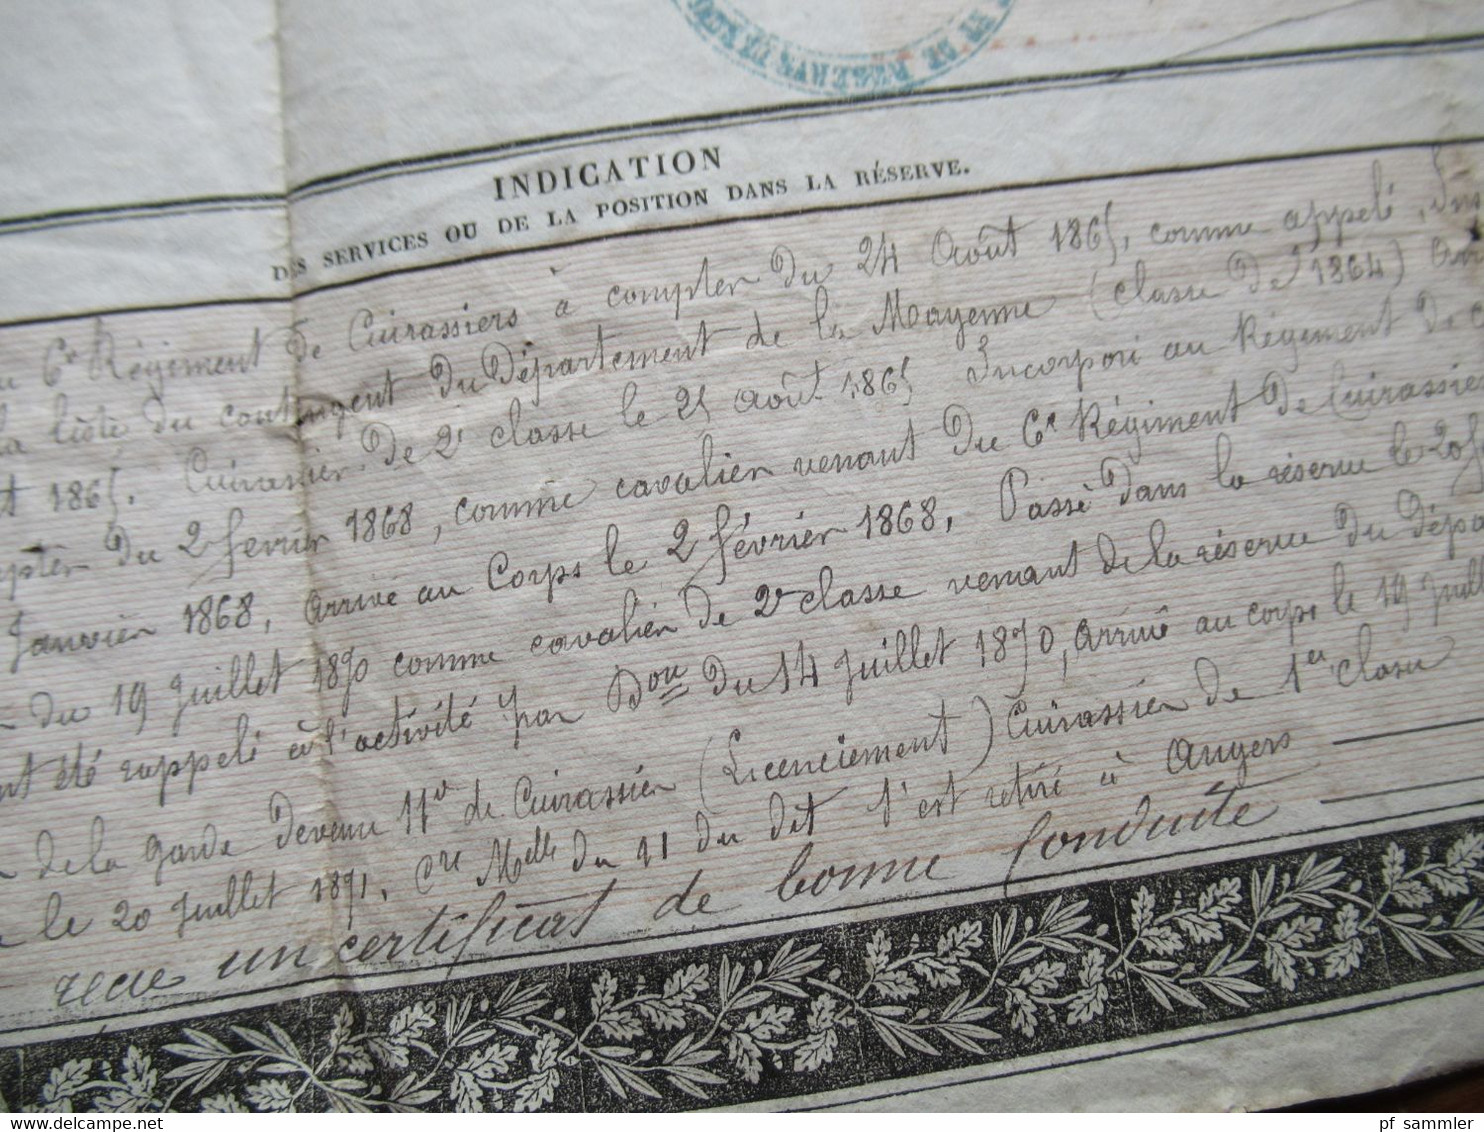 ET DE RÉSERVE
INDICATION
DES SERVICES OU DE LA POSITION DANS LA RÉSERVE.
6e Régiment de Cuirassiers à compter du 24 Août 1865, comme appelé,
la liste du contingent du Département de la Mayenne (classe de 1864)
1865. Cuirassier de 2e classe le 25 Août 1865 Incorporé au Régiment de
du 2 février 1868, comme cavalier venant du 6e Régiment de Cuirassie
Janvier 1868, arrivé au Corps le 2 février 1868, Passé dans la réserve le 20
du 19 Juillet 1870 comme cavalier de 2e classe venant de la réserve du Dépa
été rappelé à l'activité par Don du 14 Juillet 1870, arrivé au corps le 19 Juill
de la garde devenu 11e de Cuirassier (Licenciement) Cuirassier de 1er classe
le 20 Juillet 1871, Melle du 11 du dit s'est retiré à Angers
un certificat de bonne Conduite
delcampe.net
pf_sammler